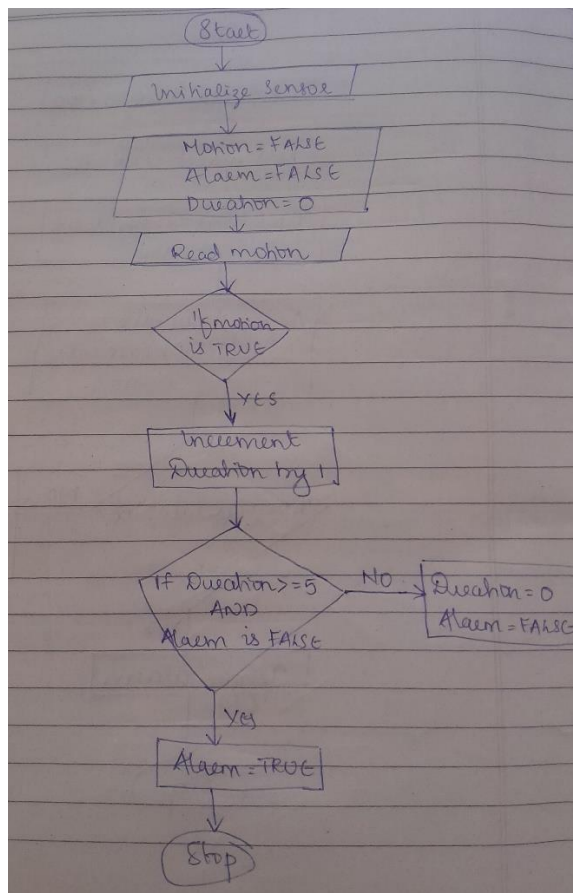 Start
Initialize Sensor
Motion = FALSE
Alarm = FALSE
Duration = 0
Read motion
If motion
is TRUE
YES
Increment
Duration by 1
If Duration >= 5
AND
Alarm is FALSE
NO
Duration = 0
Alarm = FALSE
YES
Alarm = TRUE
Stop